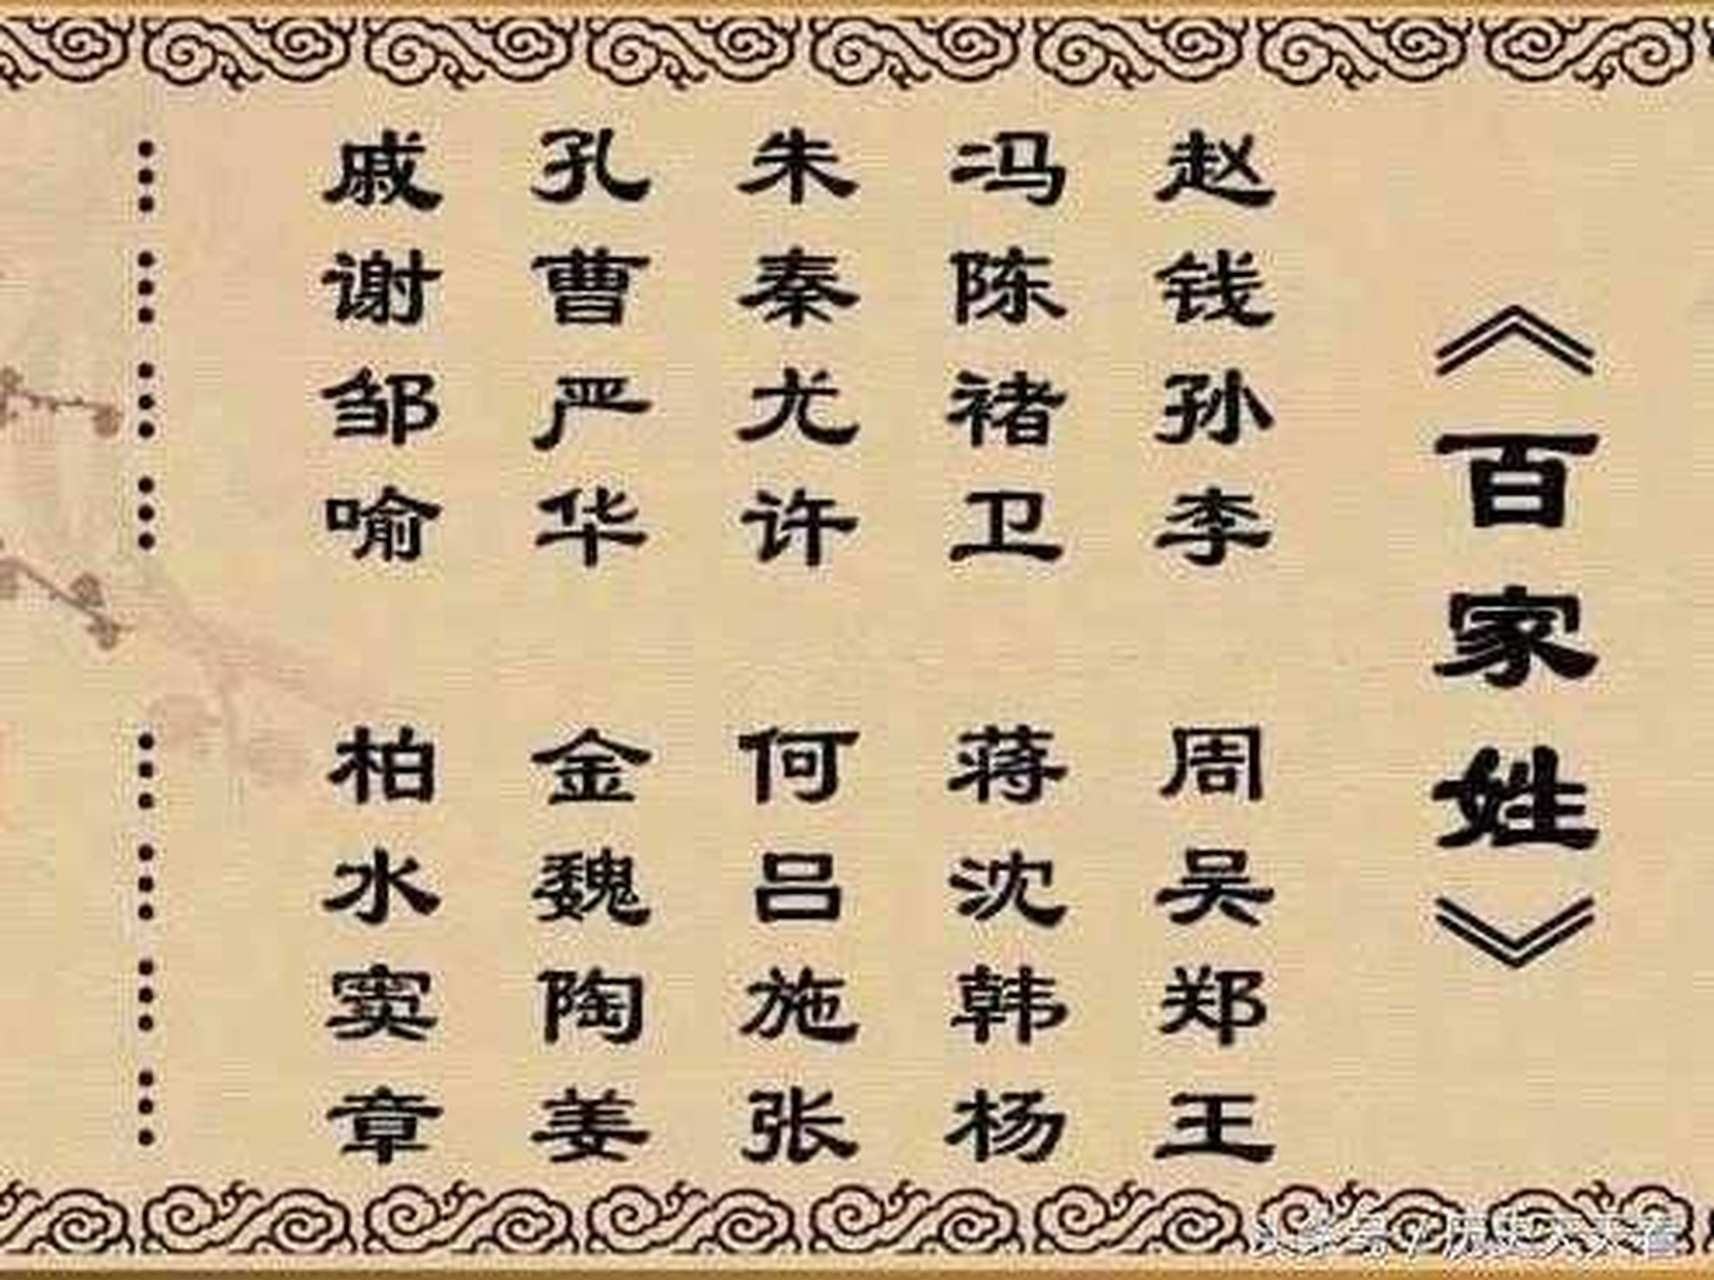 《百家姓》
赵钱孙李 周吴郑王
冯陈褚卫 蒋沈韩杨
朱秦尤许 何吕施张
孔曹严华 金魏陶姜
戚谢邹喻 柏水窦章
……………………
头条号 / 历史天天看